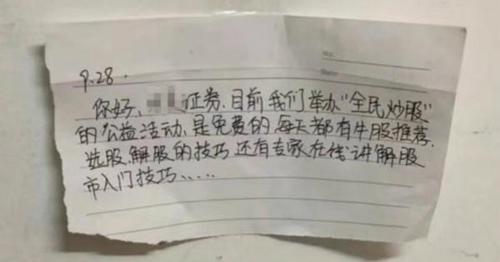 9.28.
你好、证券.目前我们举办“全民炒股”
的公益活动、是免费的、每天都有牛股推荐.
选股、解股的技巧、还有专家在线讲解股
市入门技巧、....